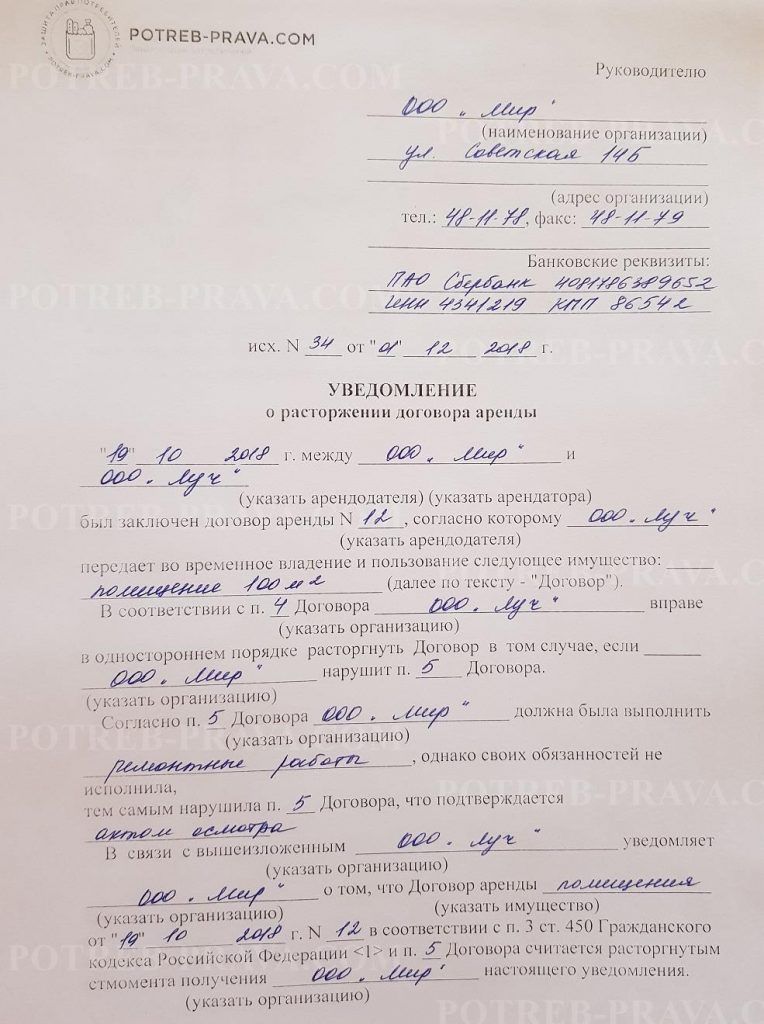 ЗАЩИТА ПРАВ ПОТРЕБИТЕЛЕЙ
POTREB-PRAVA.COM
POTREB-PRAVA.COM
Руководителю
ООО „ Мир "
(наименование организации)
ул. Советская 14Б
(адрес организации)
тел.: 48-11-78, факс: 48-11-79
Банковские реквизиты:
ПАО Сбербанк 4081786389652
ИНН 4341219 КМП 86542
исх. N 34 от "01" 12 2018 г.
УВЕДОМЛЕНИЕ
о расторжении договора аренды
"19" 10 2018 г. между ООО „ Мир " и
ООО „ Луч "
(указать арендодателя) (указать арендатора)
был заключен договор аренды N 12, согласно которому ООО „ Луч "
(указать арендодателя)
передает во временное владение и пользование следующее имущество:
помещение 100 м2 (далее по тексту - "Договор").
В соответствии с п. 4 Договора ООО „ Луч " вправе
(указать организацию)
в одностороннем порядке расторгнуть Договор в том случае, если
ООО „ Мир " нарушит п. 5 Договора.
(указать организацию)
Согласно п. 5 Договора ООО „ Мир " должна была выполнить
(указать организацию)
ремонтные работы, однако своих обязанностей не
исполнила,
тем самым нарушила п. 5 Договора, что подтверждается
актом осмотра
В связи с вышеизложенным ООО „ Луч " уведомляет
(указать организацию)
ООО „ Мир " о том, что Договор аренды помещения
(указать организацию) (указать имущество)
от "19" 10 2018 г. N 12 в соответствии с п. 3 ст. 450 Гражданского
кодекса Российской Федерации <1> и п. 5 Договора считается расторгнутым
стмомента получения ООО „ Мир " настоящего уведомления.
(указать организацию)